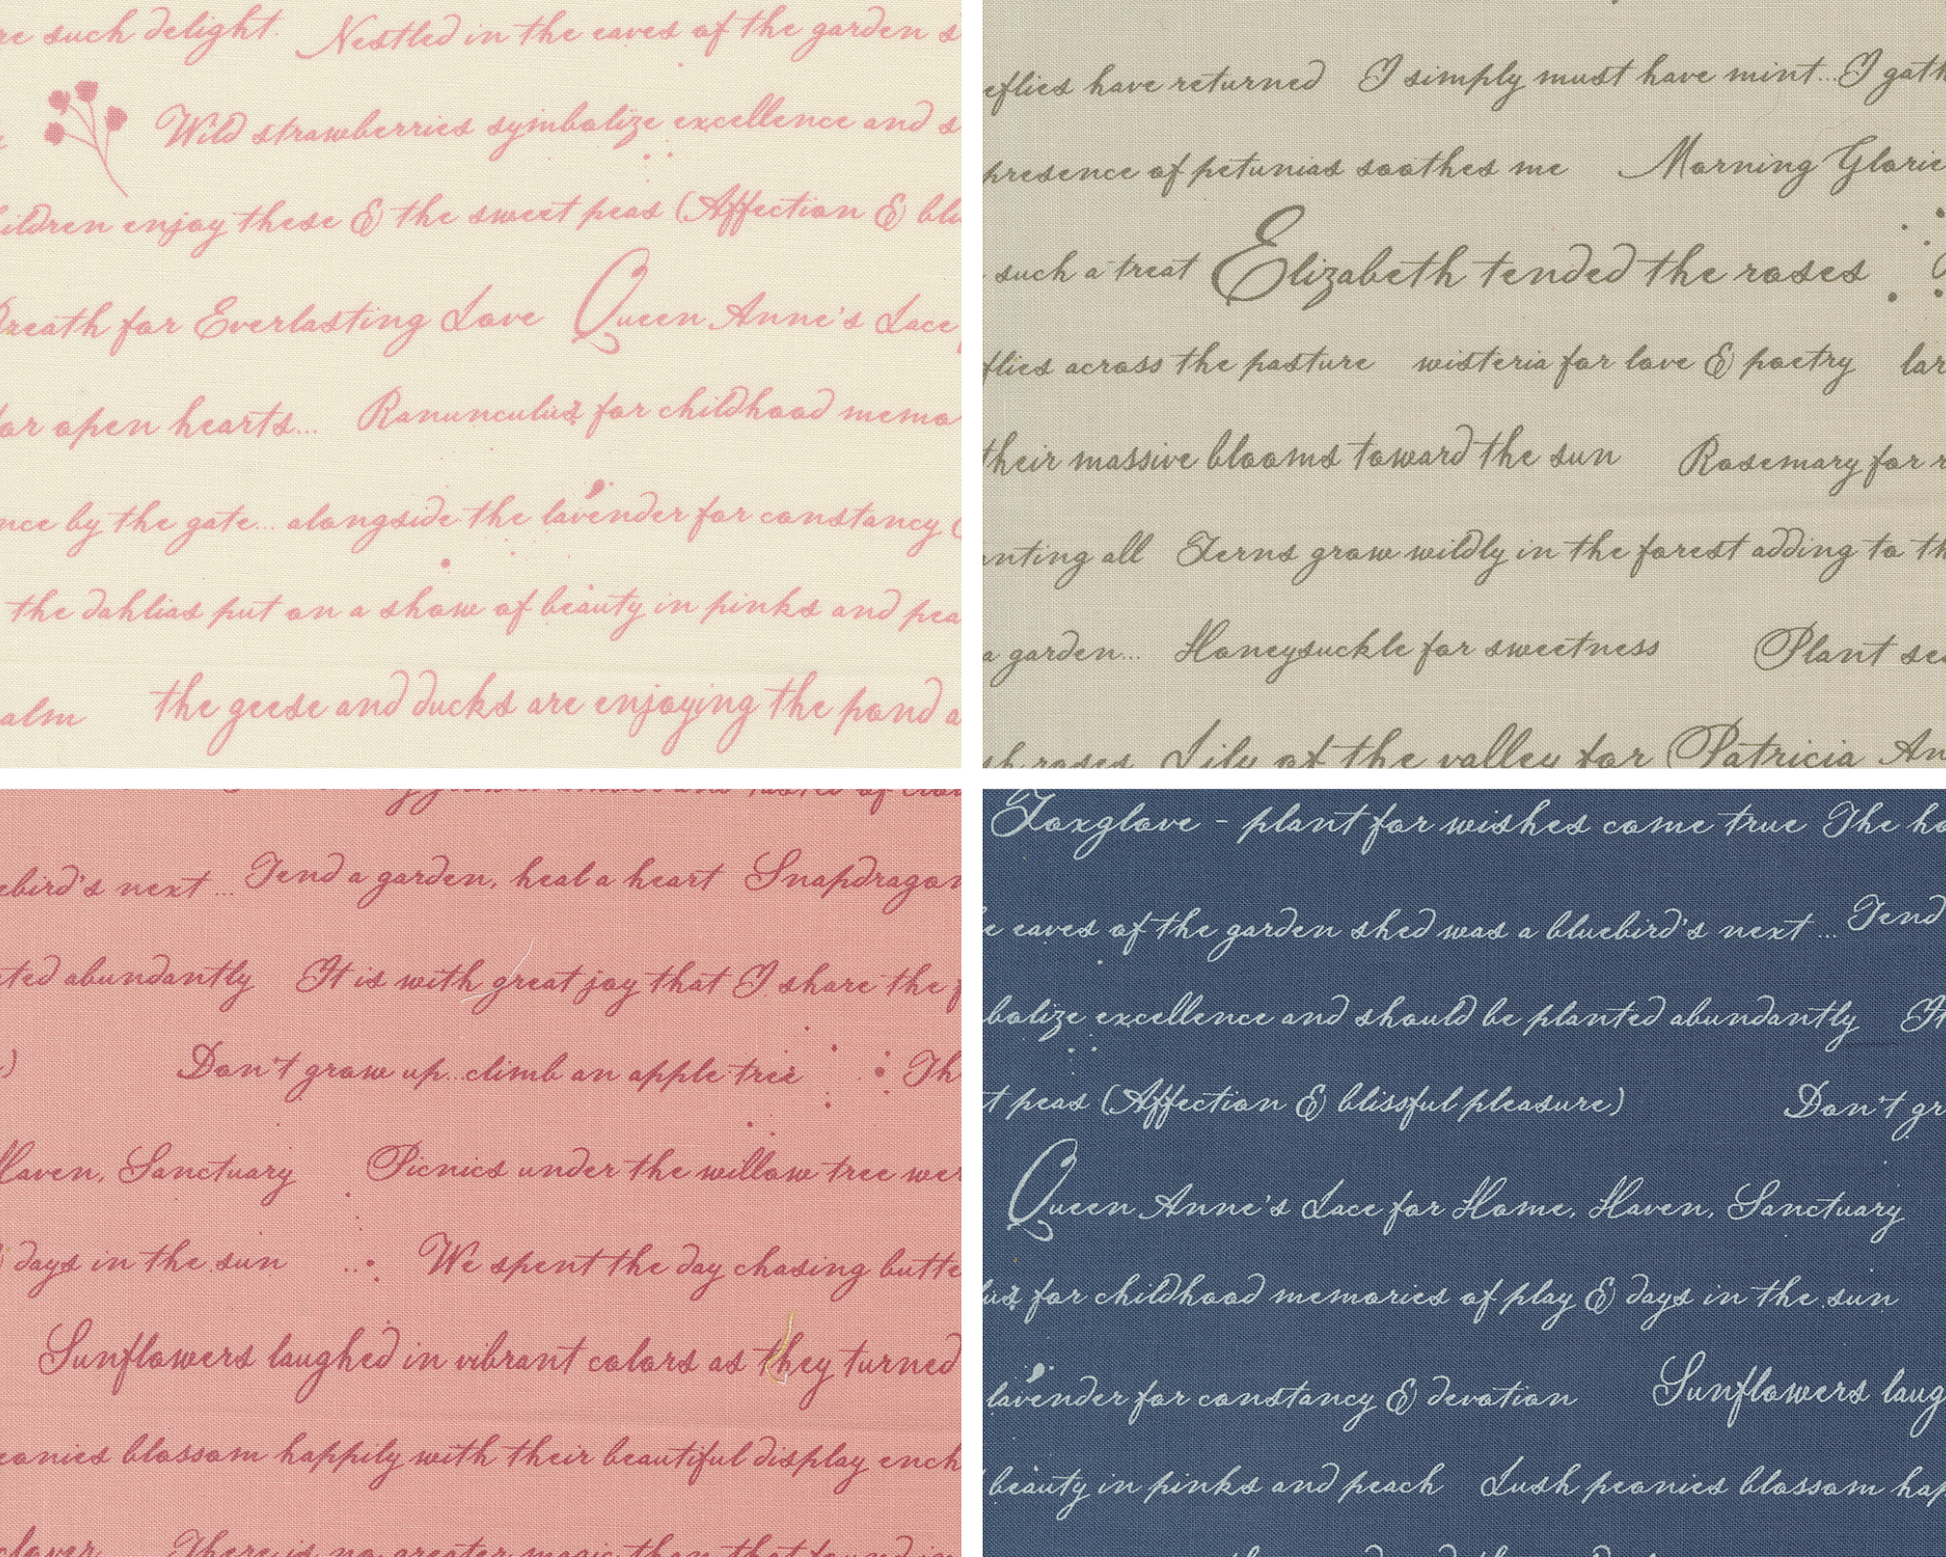 re such delight. Nestled in the eaves of the garden s
Wild strawberries symbolize excellence and s
ildren enjoy these & the sweet peas (Affection & bli
Breath for Everlasting Love Queen Anne's Lace
for open hearts... Ranunculus for childhood memo
nce by the gate... alongside the lavender for constancy
the dahlias put on a show of beauty in pinks and pea
alm the geese and ducks are enjoying the pond a
eflies have returned I simply must have mint...I gath
presence of petunias soothes me Morning Glorie
such a treat Elizabeth tended the roses
flies across the pasture wisteria for love & poetry lar
their massive blooms toward the sun Rosemary for r
anting all Ferns grow wildly in the forest adding to th
a garden... Honeysuckle for sweetness Plant se
sh roses Lily of the valley for Patricia An
ebird's next ... Tend a garden, heal a heart Snapdragon
ted abundantly It is with great joy that I share the f
) Don't grow up...climb an apple tree Th
Haven, Sanctuary Picnics under the willow tree wer
days in the sun We spent the day chasing butte
Sunflowers laughed in vibrant colors as they turned
eonies blossom happily with their beautiful display ench
clover There is no greater magic than that found in
Foxglove - plant for wishes come true The ho
e eaves of the garden shed was a bluebird's next ... Tend
bolize excellence and should be planted abundantly It
t peas (Affection & blissful pleasure) Don't gr
Queen Anne's Lace for Home, Haven, Sanctuary
lus for childhood memories of play & days in the sun
lavender for constancy & devotion Sunflowers laug
beauty in pinks and peach Lush peonies blossom hap